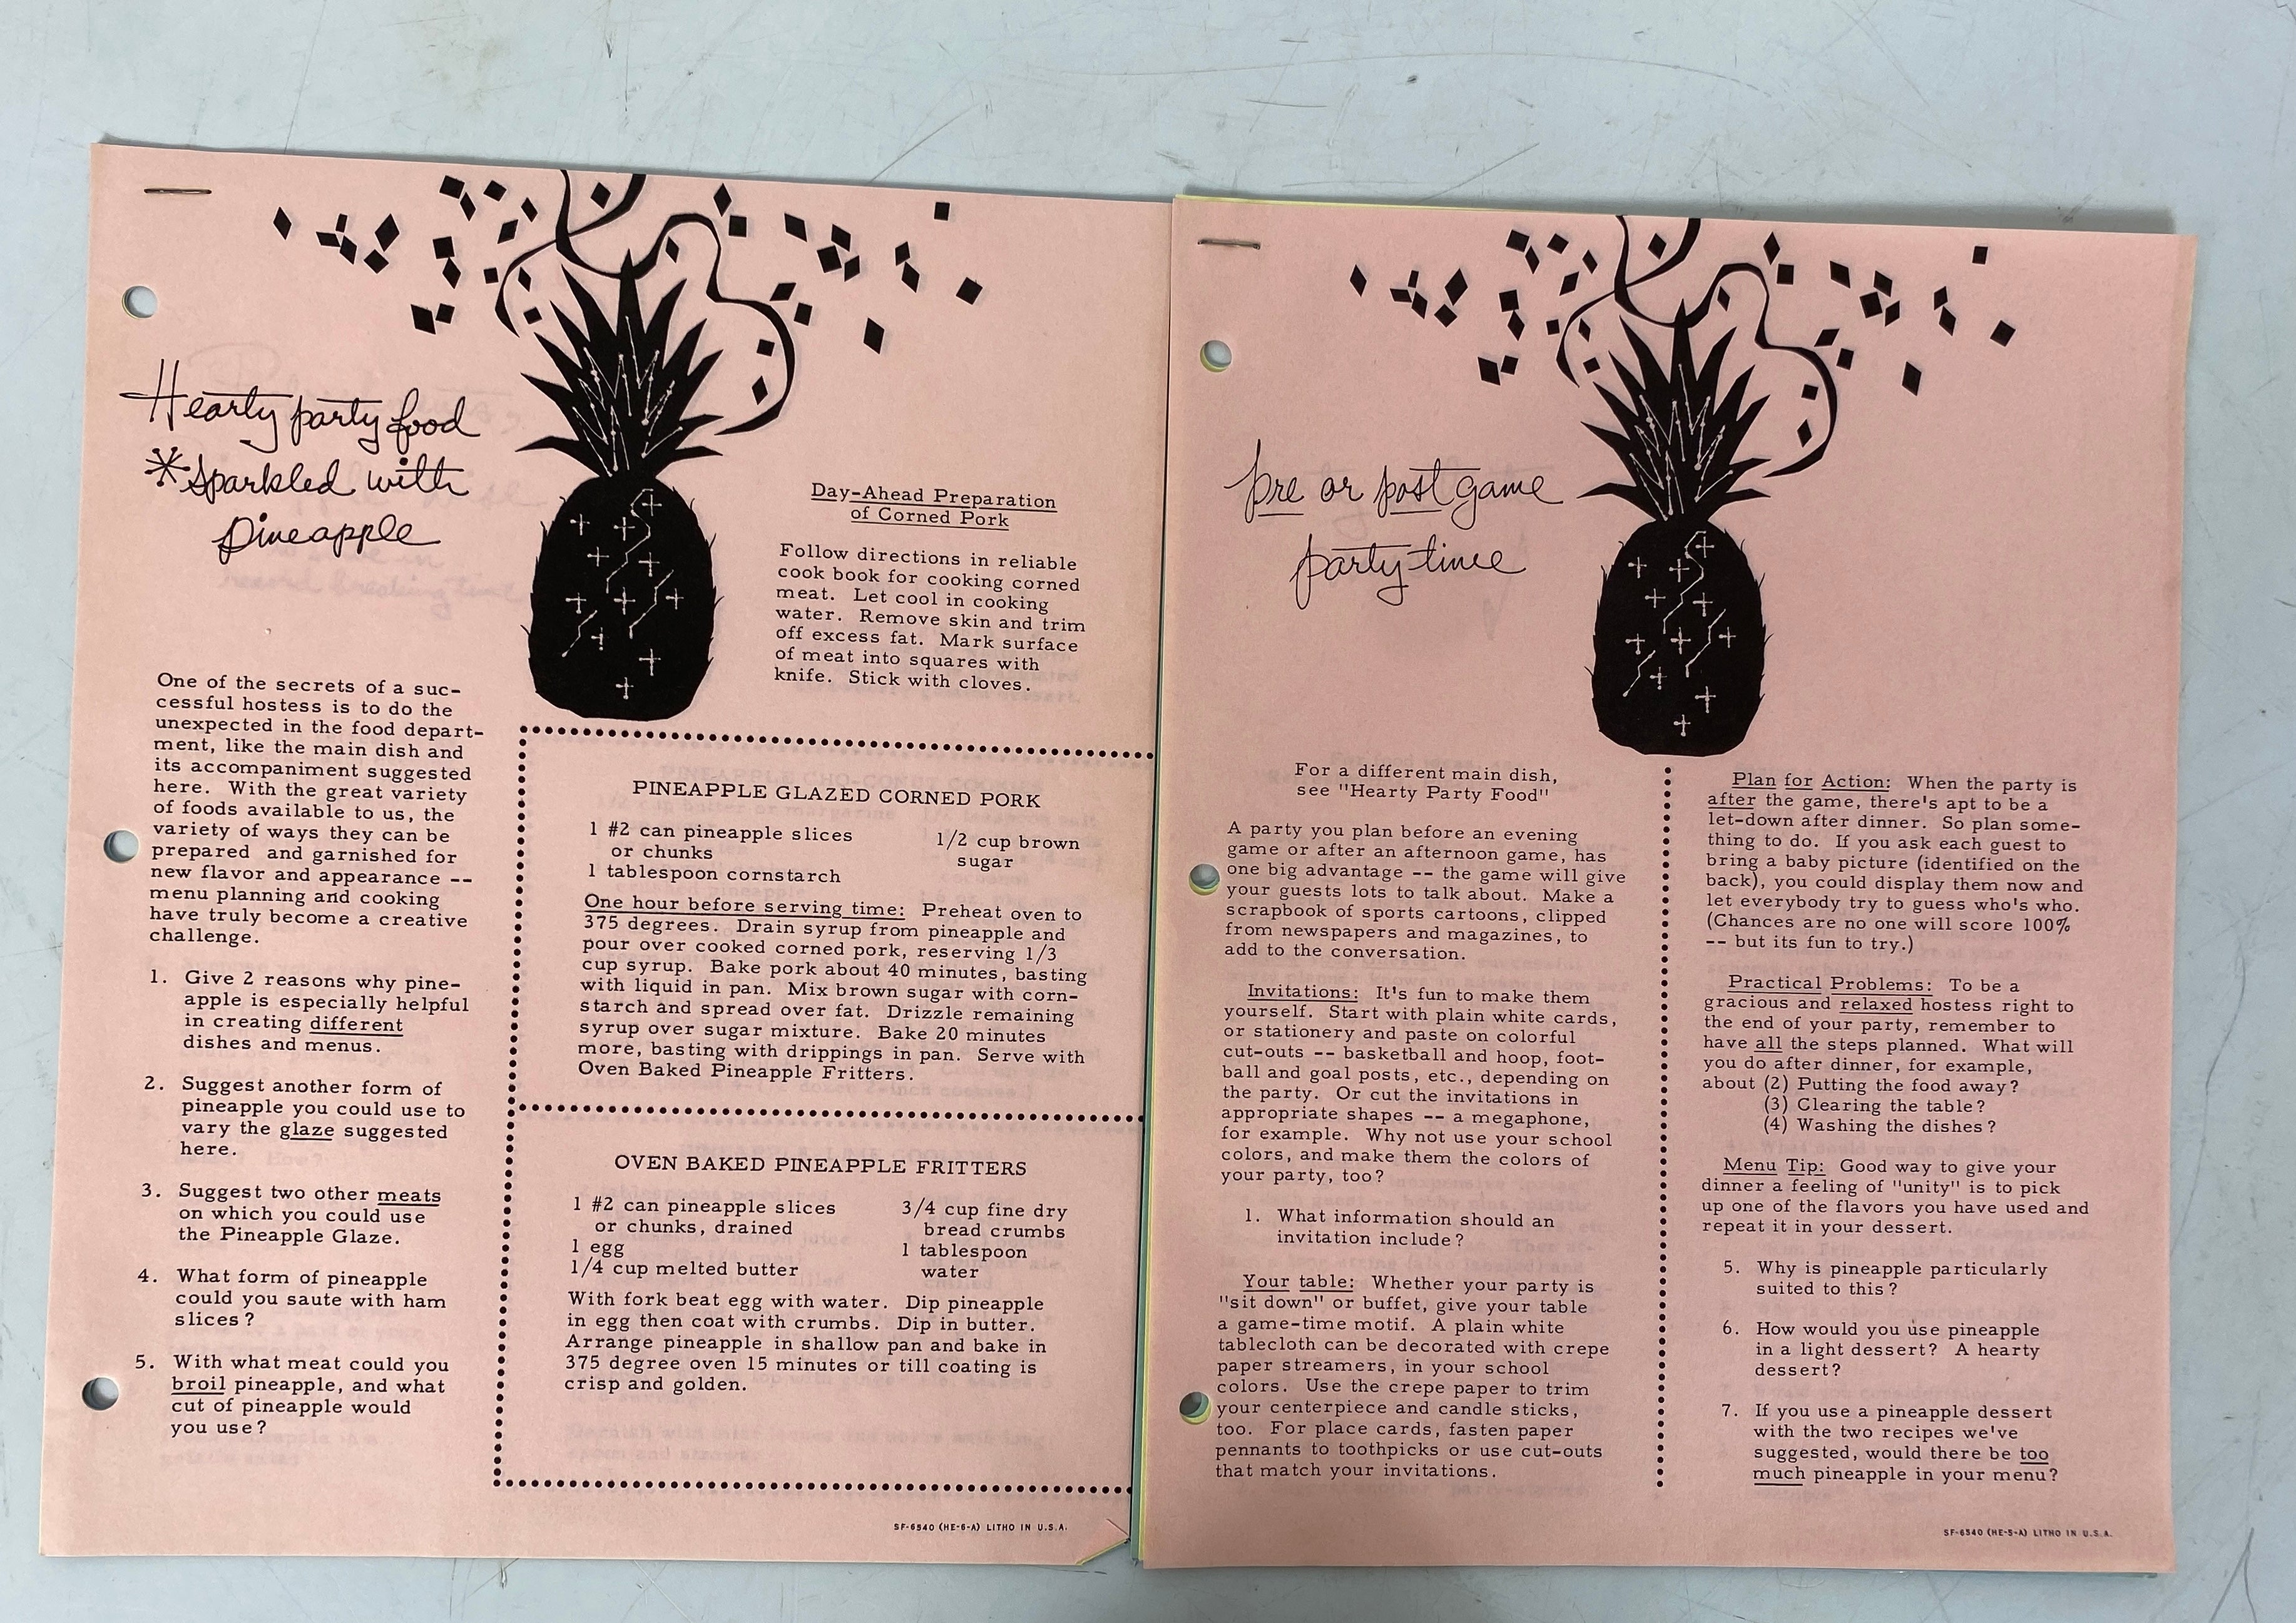 Hearty party food
sparkled with
pineapple
One of the secrets of a suc-
cessful hostess is to do the
unexpected in the food depart-
ment, like the main dish and
its accompaniment suggested
here. With the great variety
of foods available to us, the
variety of ways they can be
prepared and garnished for
new flavor and appearance --
menu planning and cooking
have truly become a creative
challenge.
1. Give 2 reasons why pine-
apple is especially helpful
in creating different
dishes and menus.
2. Suggest another form of
pineapple you could use to
vary the glaze suggested
here.
3. Suggest two other meats
on which you could use
the Pineapple Glaze.
4. What form of pineapple
could you saute with ham
slices?
5. With what meat could you
broil pineapple, and what
cut of pineapple would
you use?
Day-Ahead Preparation
of Corned Pork
Follow directions in reliable
cook book for cooking corned
meat. Let cool in cooking
water. Remove skin and trim
off excess fat. Mark surface
of meat into squares with
knife. Stick with cloves.
PINEAPPLE GLAZED CORNED PORK
1 #2 can pineapple slices
or chunks
1 tablespoon cornstarch
1/2 cup brown
sugar
One hour before serving time: Preheat oven to
375 degrees. Drain syrup from pineapple and
pour over cooked corned pork, reserving 1/3
cup syrup. Bake pork about 40 minutes, basting
with liquid in pan. Mix brown sugar with corn-
starch and spread over fat. Drizzle remaining
syrup over sugar mixture. Bake 20 minutes
more, basting with drippings in pan. Serve with
Oven Baked Pineapple Fritters.
OVEN BAKED PINEAPPLE FRITTERS
1 #2 can pineapple slices
or chunks, drained
1 egg
1/4 cup melted butter
3/4 cup fine dry
bread crumbs
1 tablespoon
water
With fork beat egg with water. Dip pineapple
in egg then coat with crumbs. Dip in butter.
Arrange pineapple in shallow pan and bake in
375 degree oven 15 minutes or till coating is
crisp and golden.
SF-6540 (HE-6-A) LITHO IN U.S.A.
pre or post game
party time
For a different main dish,
see "Hearty Party Food"
A party you plan before an evening
game or after an afternoon game, has
one big advantage -- the game will give
your guests lots to talk about. Make a
scrapbook of sports cartoons, clipped
from newspapers and magazines, to
add to the conversation.
Invitations: It's fun to make them
yourself. Start with plain white cards,
or stationery and paste on colorful
cut-outs -- basketball and hoop, foot-
ball and goal posts, etc., depending on
the party. Or cut the invitations in
appropriate shapes -- a megaphone,
for example. Why not use your school
colors, and make them the colors of
your party, too?
1. What information should an
invitation include?
Your table: Whether your party is
"sit down" or buffet, give your table
a game-time motif. A plain white
tablecloth can be decorated with crepe
paper streamers, in your school
colors. Use the crepe paper to trim
your centerpiece and candle sticks,
too. For place cards, fasten paper
pennants to toothpicks or use cut-outs
that match your invitations.
Plan for Action: When the party is
after the game, there's apt to be a
let-down after dinner. So plan some-
thing to do. If you ask each guest to
bring a baby picture (identified on the
back), you could display them now and
let everybody try to guess who's who.
(Chances are no one will score 100%
-- but its fun to try.)
Practical Problems: To be a
gracious and relaxed hostess right to
the end of your party, remember to
have all the steps planned. What will
you do after dinner, for example,
about (2) Putting the food away?
(3) Clearing the table?
(4) Washing the dishes?
Menu Tip: Good way to give your
dinner a feeling of "unity" is to pick
up one of the flavors you have used and
repeat it in your dessert.
5. Why is pineapple particularly
suited to this?
6. How would you use pineapple
in a light dessert? A hearty
dessert?
7. If you use a pineapple dessert
with the two recipes we've
suggested, would there be too
much pineapple in your menu?
SF-6540 (HE-5-A) LITHO IN U.S.A.